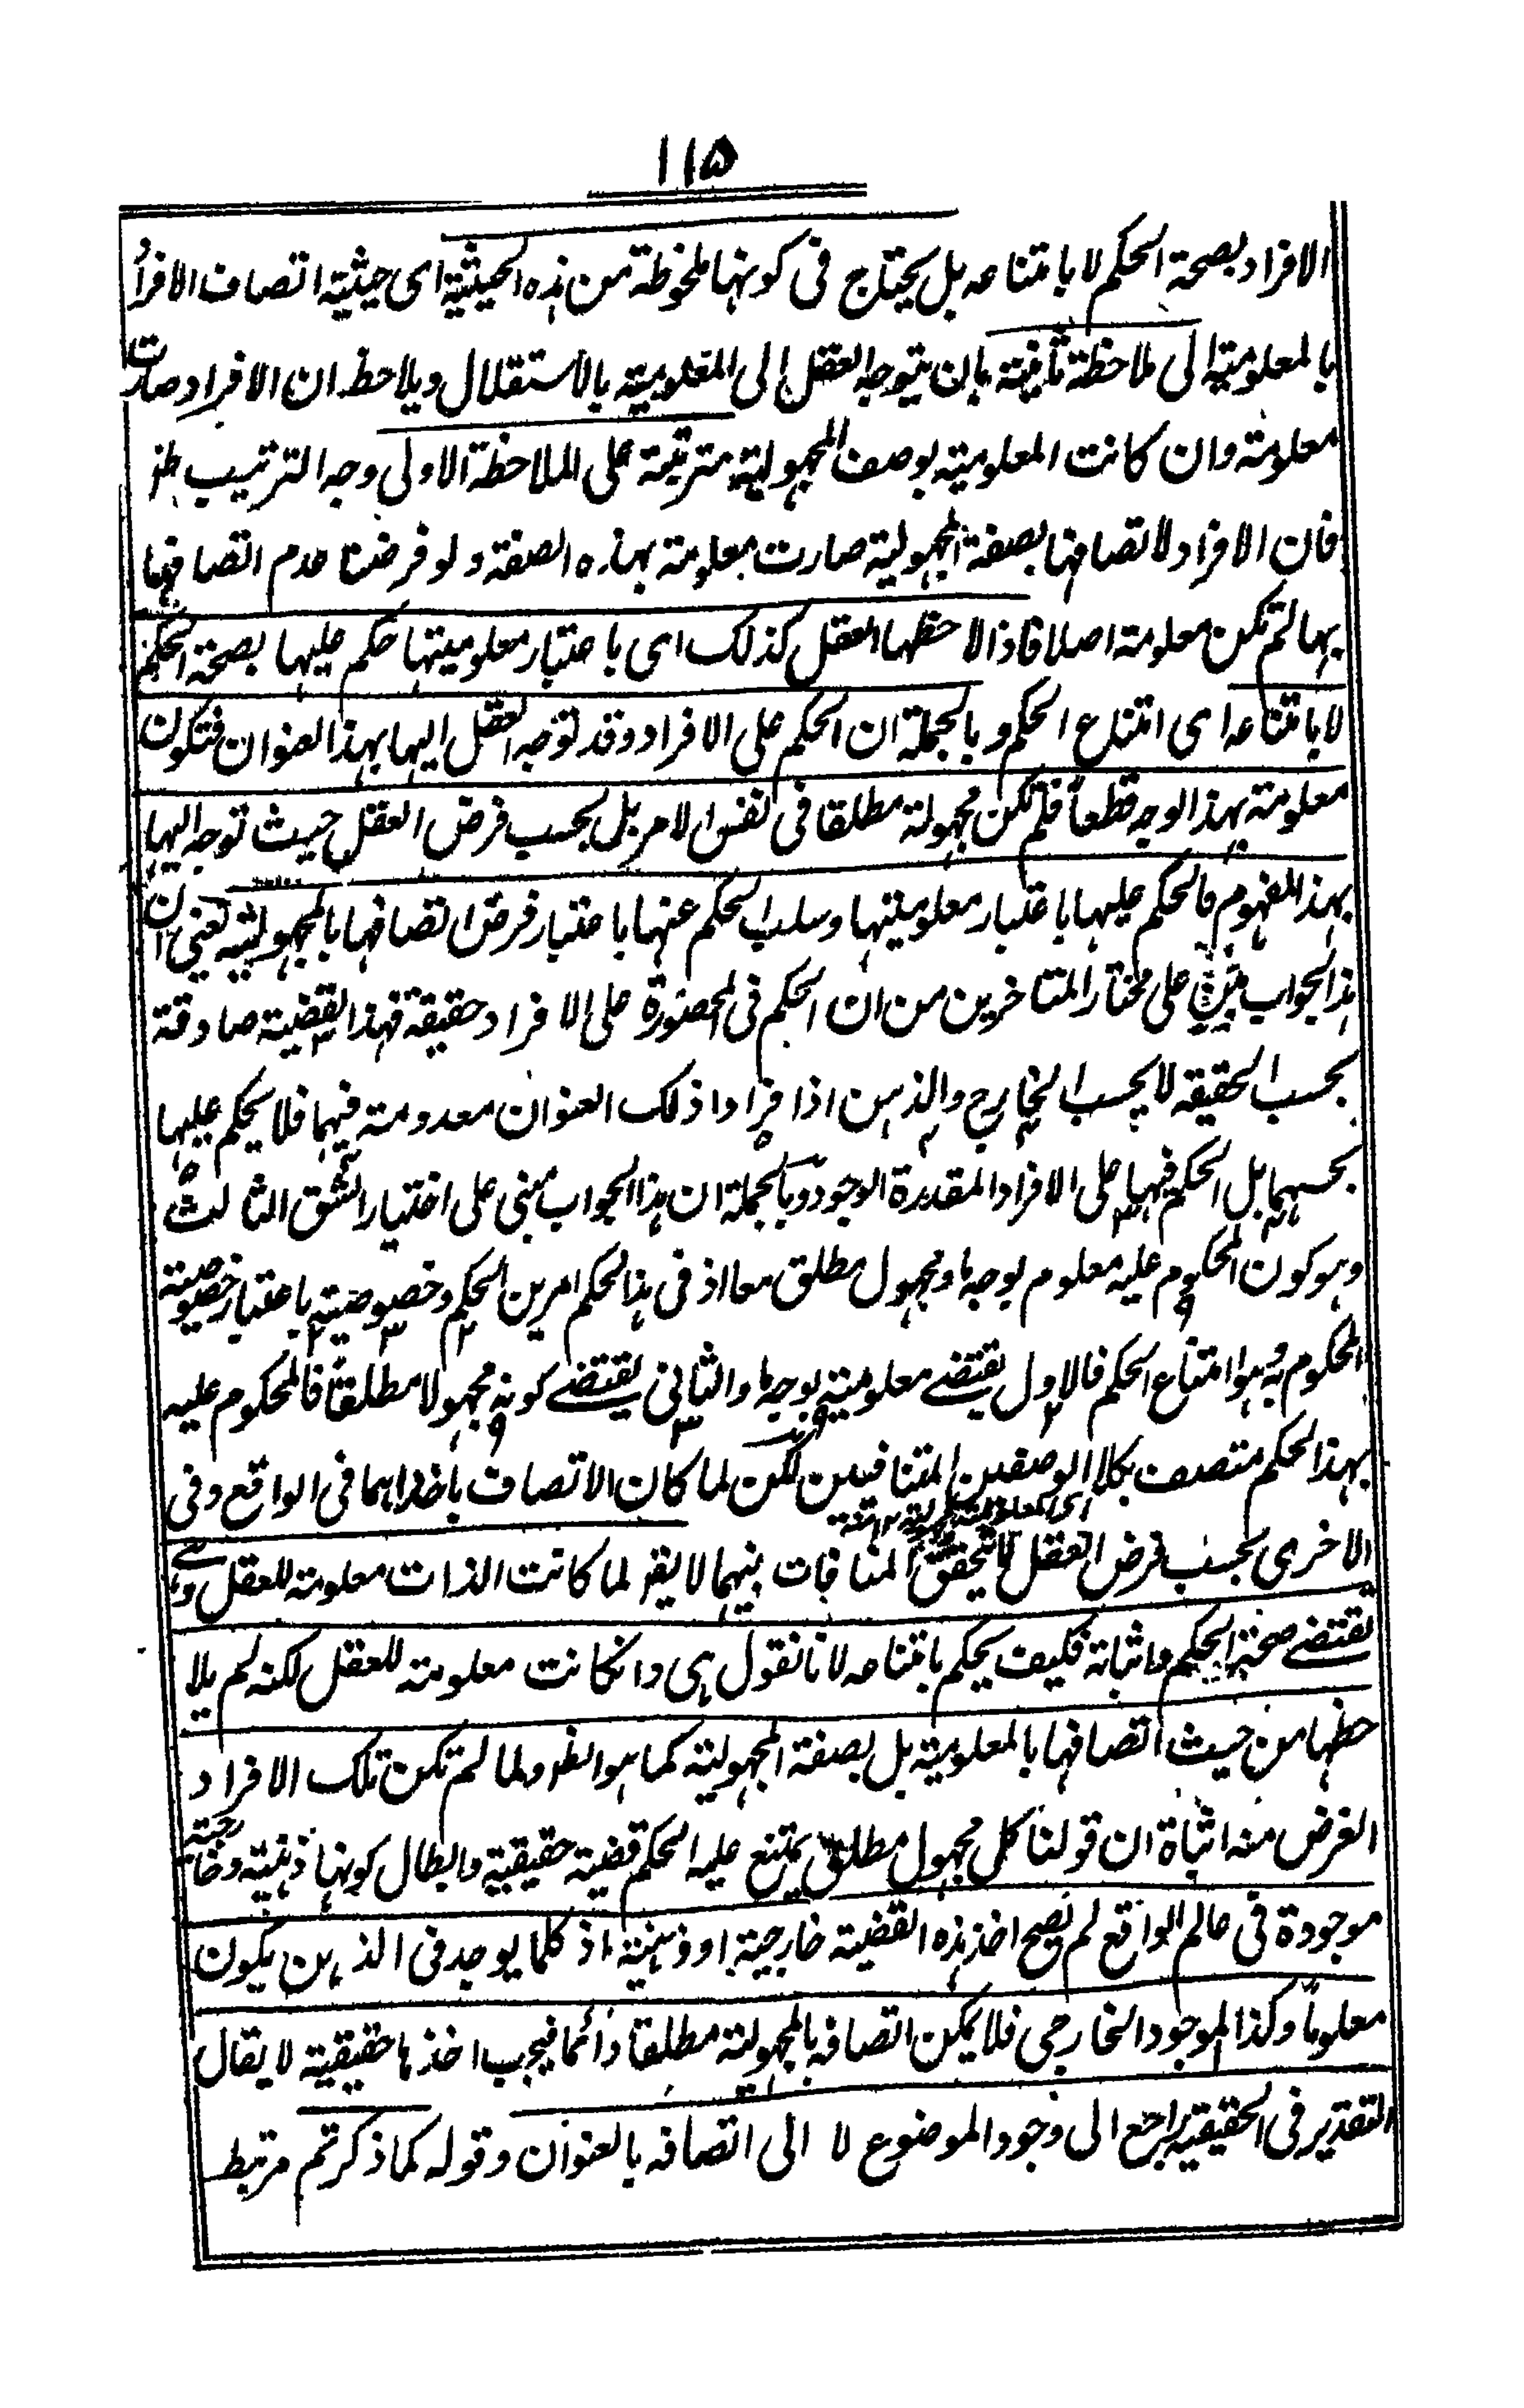 ۱۱۵
الافراد بصحة الحكم لا بامتناعه بل يحتاج فى كونها ملحوظة من هذه الحيثية اى حيثية اتصاف الافراد
بالمعلومية الى ملاحظة ثانية بان يتوجه العقل الى المعلومية بالاستقلال ويلاحظ ان الافراد صارت
معلومة وان كانت المعلومية بوصف المجهولية مترتبة على الملاحظة الاولى وجه الترتيب ظ
فان الافراد لاتصافها بصفة المجهولية صارت معلومة بهذه الصفة ولو فرضنا عدم اتصافها
بها لم تكن معلومة اصلا فاذا لاحظها العقل كذلك اى باعتبار معلوميتها حكم عليها بصحة الحكم
لا بامتناعه اى امتناع الحكم وبالجملة ان الحكم على الافراد وقد توجه العقل اليها بهذا العنوان فتكون
معلومة بهذا الوجه قطعاً فلم تكن مجهولة مطلقا فى نفس الامر بل بحسب فرض العقل حيث توجه اليها
بهذا المفهوم فالحكم عليها باعتبار معلوميتها وسلب الحكم عنها باعتبار فرض اتصافها بالمجهولية يعنى ان
هذا الجواب مبنى على مختار المتاخرين من ان الحكم فى المحصورة على الافراد حقيقة فهذا القضية صادقة
بحسب الحقيقه لا بحسب الخارج والذهن اذا فراد ذلك العنوان معدومة فيهما فلا يحكم عليها
بحسبهما بل الحكم فيها على الافراد المقدرة الوجود وبالجملة ان هذا الجواب مبنى على اختيار الشق الثالث
وهو كون المحكوم عليه معلوم بوجه ما ومجهول مطلق معا اذ فى هذا الحكم امرين الحكم وخصوصيته باعتبار خصوصية
المحكوم به وهو امتناع الحكم فالاول يقتضى معلوميته بوجه ما والثانى يقتضى كونه مجهولا مطلقاً فالمحكوم عليه
بهذا الحكم متصف بكلا الوصفين المتنافيين لكن لما كان الاتصاف باحدهما فى الواقع وفى
الاخرى بحسب فرض العقل لا يتحقق المنافات بينهما لا يقر لما كانت الذات معلومة للعقل وهى
تقتضى صحة الحكم واثباته فكيف يحكم بامتناعه لانا نقول هى وانكانت معلومة للعقل لكنه لم يلا
حظها من حيث اتصافها بالمعلومية بل بصفة المجهولية كما هو الظ ولما لم تكن تلك الافراد
الغرض منه اثباة ان قولنا كل مجهول مطلق يمتنع عليه الحكم قضية حقيقية وابطال كونها ذهنية وخارجية
موجودة فى عالم الواقع لم يصح اخذ هذه القضية خارجية او ذهنية اذ كلما يوجد فى الذهن يكون
معلوماً وكذا الموجود الخارجى فلا يمكن اتصافه بالمجهولية مطلقا دائما فيجب اخذها حقيقية لا يقال
التقدير فى الحقيقية راجع الى وجود الموضوع لا الى اتصافه بالعنوان وقوله كما ذكرتم مرتبط